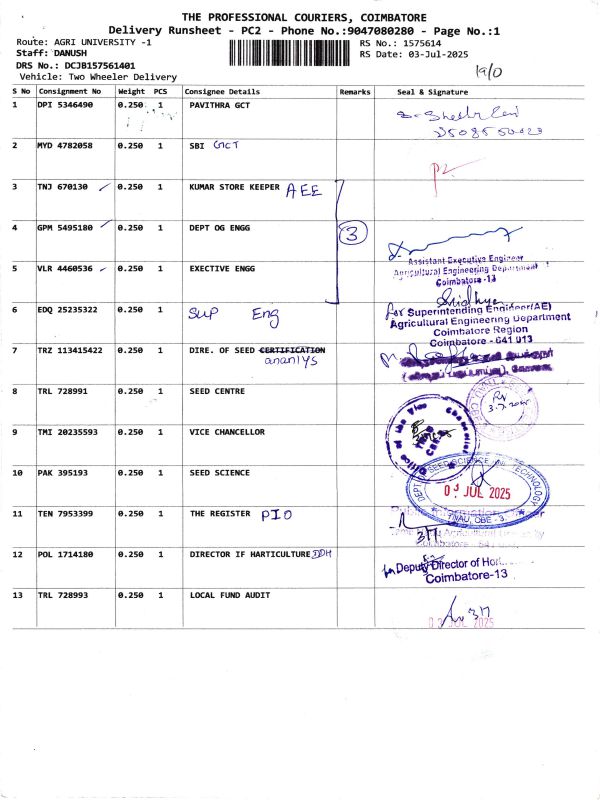 THE PROFESSIONAL COURIERS, COIMBATORE
Delivery Runsheet - PC2 - Phone No.:9047080280 - Page No.:1
Route: AGRI UNIVERSITY -1
RS No.: 1575614
Staff: DANUSH
RS Date: 03-Jul-2025
DRS No.: DCJB157561401
Vehicle: Two Wheeler Delivery
19/0
S No Consignment No Weight PCS Consignee Details Remarks Seal & Signature
1 DPI 5346490 0.250 1 PAVITHRA GCT
2 MYD 4782058 0.250 1 SBI GCT
3 TNJ 670130 0.250 1 KUMAR STORE KEEPER AEE
4 GPM 5495180 0.250 1 DEPT OG ENGG 3
Assistant Executive Engineer
Agricultural Engineering Department
Coimbatore -13
5 VLR 4460536 0.250 1 EXECTIVE ENGG
6 EDQ 25235322 0.250 1 Sup Eng
for Superintending Engineer(AE)
Agricultural Engineering Department
Coimbatore Region
Coimbatore - 641 013
7 TRZ 113415422 0.250 1 DIRE. OF SEED CERTIFICATION
ananlys
8 TRL 728991 0.250 1 SEED CENTRE
9 TMI 20235593 0.250 1 VICE CHANCELLOR
Office of the Vice Chancellor
10 PAK 395193 0.250 1 SEED SCIENCE
DEPT. SEED SCIENCE AND TECHNOLOGY
03 JUL 2025
TNAU, CBE - 3.
11 TEN 7953399 0.250 1 THE REGISTER PIO
Public Information Officer
3/7
12 POL 1714180 0.250 1 DIRECTOR IF HARTICULTURE DDH
for Deputy Director of Hor
Coimbatore-13
13 TRL 728993 0.250 1 LOCAL FUND AUDIT
3/7
03 JUL 2025